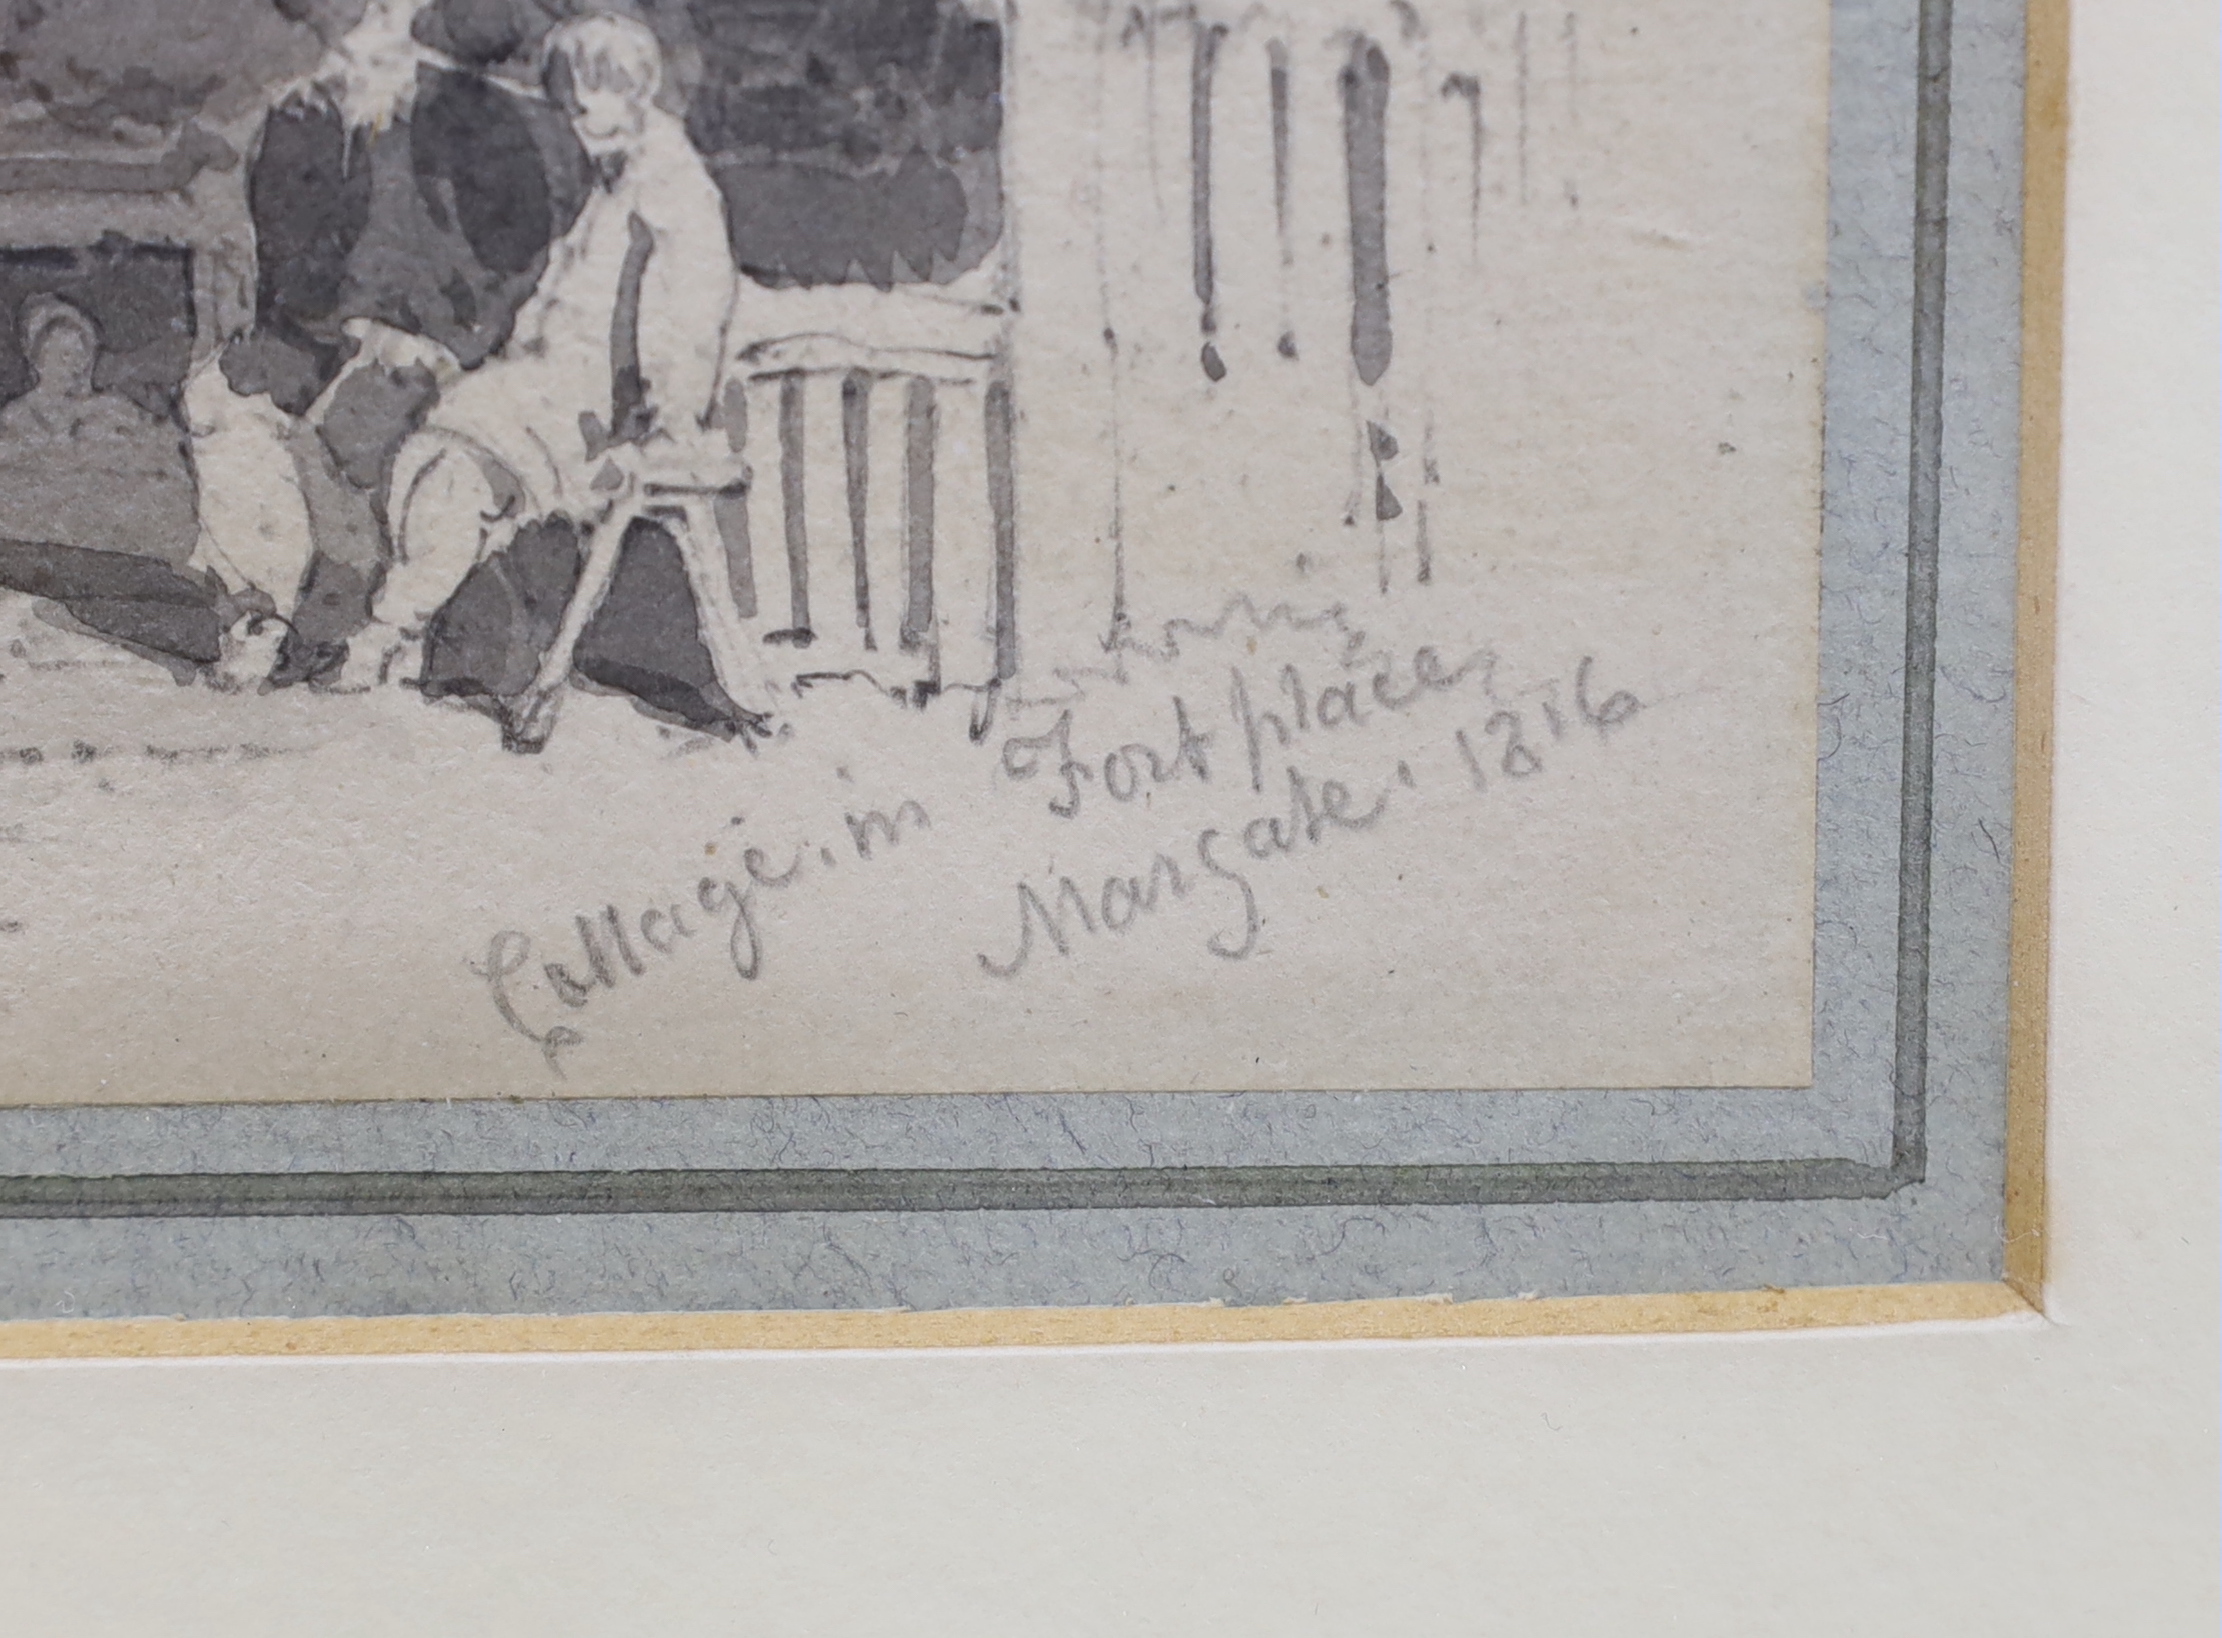 Cottage. in Fort place,
Margate. 1816